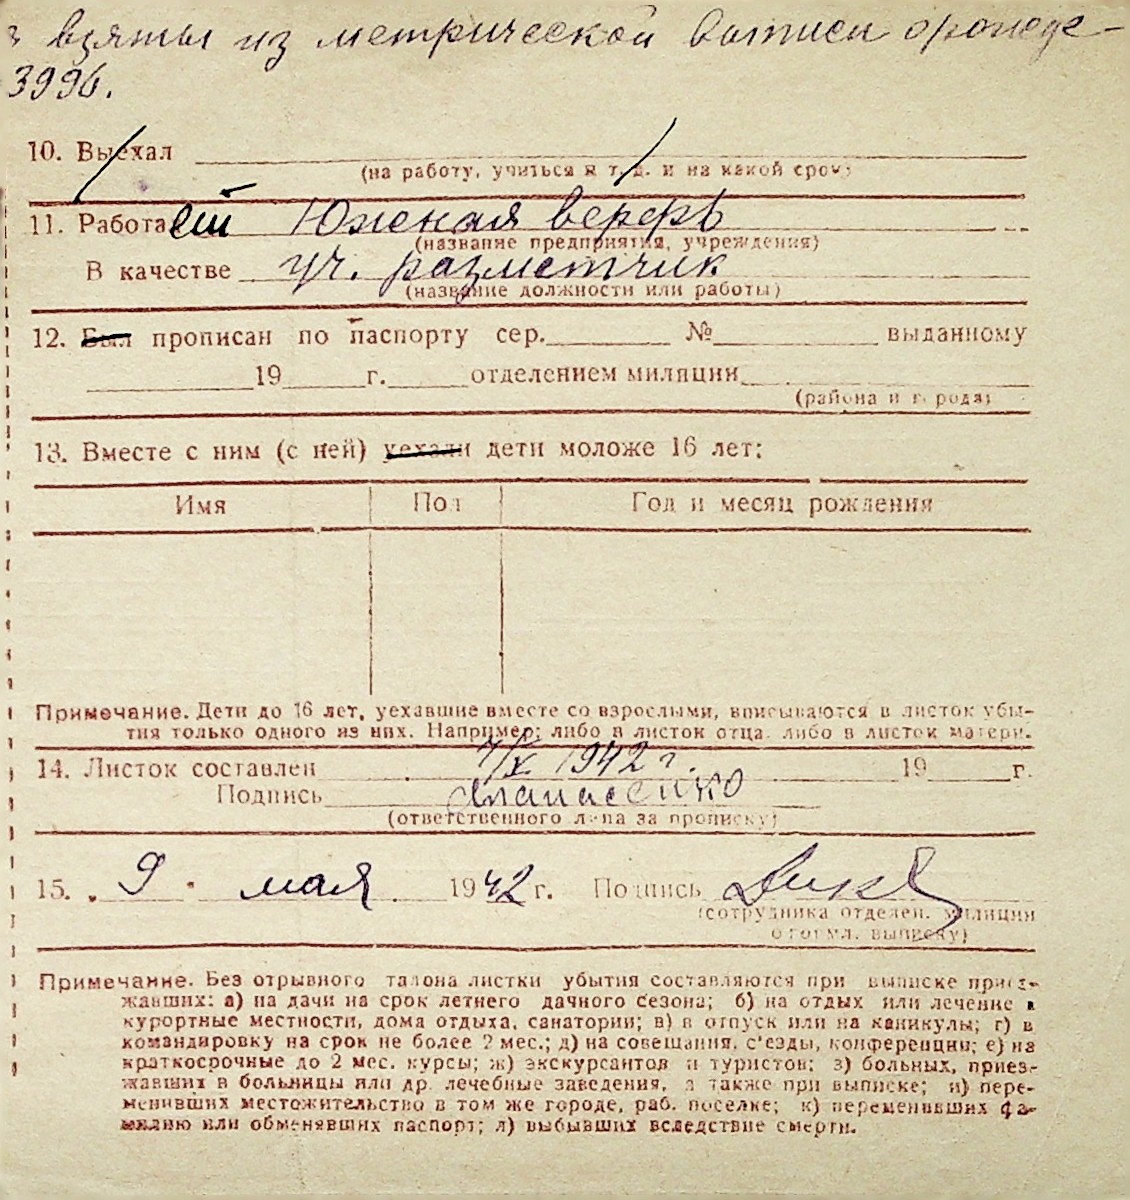 взяты из метрической выписи о рожде-
3996.
10. Выехал
(на работу, учиться и т. д. и на какой срок)
11. Работает Южная верфь
(название предприятия, учреждения)
В качестве уч. разметчик
(название должности или работы)
12. Был прописан по паспорту сер. № выданному
19 г. отделением милиции
(района и города)
13. Вместе с ним (с ней) уехали дети моложе 16 лет:
Имя Пол Год и месяц рождения
Примечание. Дети до 16 лет, уехавшие вместе со взрослыми, вписываются в листок убы-
тия только одного из них. Например: либо в листок отца, либо в листок матери.
14. Листок составлен 1942 г. 19 г.
Подпись
(ответственного лица за прописку)
15. „ 9 " мая 1942 г. Подпись
(сотрудника отделен. милиции
оформл. выписку)
Примечание. Без отрывного талона листки убытия составляются при выписке приез-
жавших: а) на дачи на срок летнего дачного сезона; б) на отдых или лечение в
курортные местности, дома отдыха, санатории; в) в отпуск или на каникулы; г) в
командировку на срок не более 2 мес.; д) на совещания, с'езды, конференции; е) на
краткосрочные до 2 мес. курсы; ж) экскурсантов и туристов; з) больных, приез-
жавших в больницы или др. лечебные заведения, а также при выписке; и) пере-
менивших местожительство в том же городе, раб. поселке; к) переменивших фа-
милию или обменявших паспорт; л) выбывших вследствие смерти.